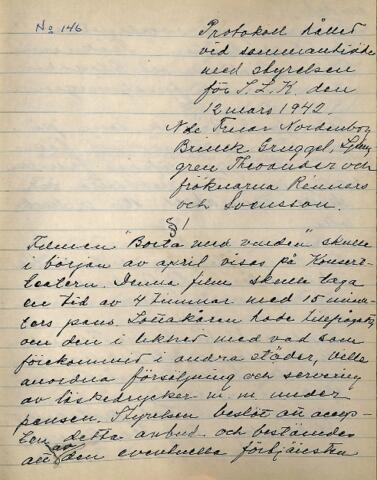 No 146
Protokoll hållet
vid sammanträde
med styrelsen
för S.L.K. den
12 mars 1942.
Nde Fruar Nordenborg
Brinck Gruggel, Ljung
gren Theorander och
fröknarna Renners
och Svensson.
§1
Filmen "Borta med vinden" skulle
i början av april visas på Konsert-
teatern. Denna film skulle taga
en tid av 4 timmar med 15 minu-
ters paus. Lottakåren hade tillfrågats,
om den i likhet med vad som
förekommit i andra städer, ville
anordna försäljning och servering
av läskedrycker m.m. under
pausen. Styrelsen beslöt att accep-
tera detta anbud och bestämdes
att av den eventuella förtjänsten